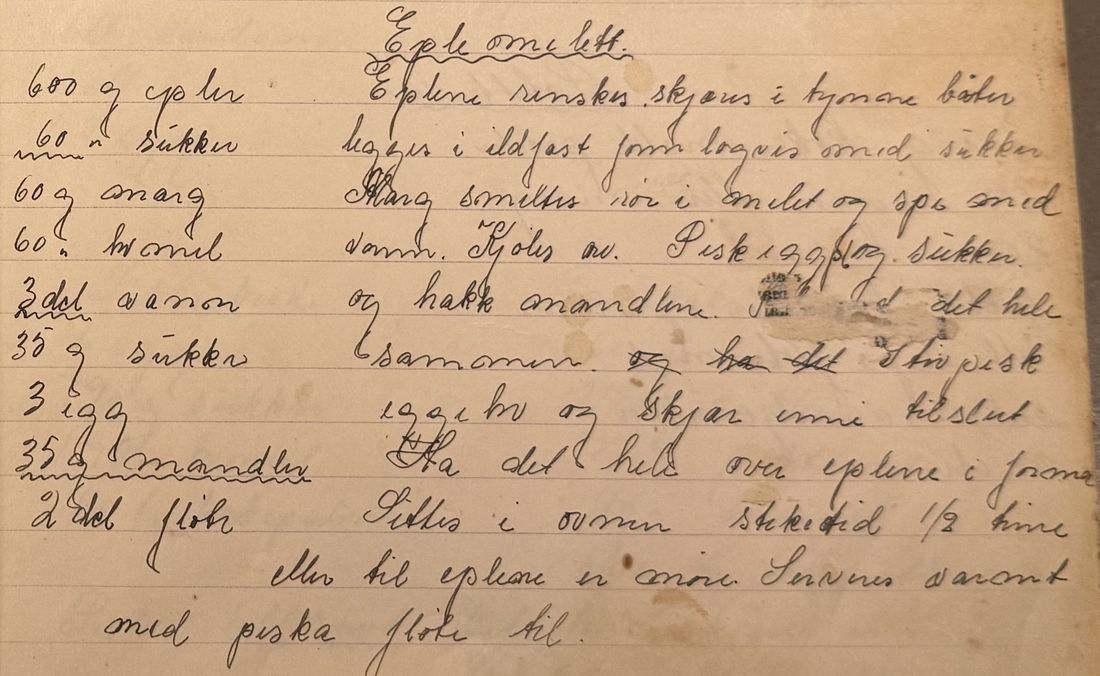 Eple omelett.
600 g epler Eplene renskes skjæres i tynne båter
60 " sukker legges i ildfast form lagvis med sukker
60 g marg Marg smeltes rør i melet og spe med
60 " hvmel vann. Kjøles av. Pisk eggpl og sukker.
3 del vann og hakk mandlene. det hele
35 g sukker sammen. og ha det Stivpisk
3 egg eggehv og skjær inni tilslut
35 g mandler Ha det hele over eplene i forma
2 del fløte Settes i ovnen steketid 1/2 time
eller til eplene er møre. Serveres varmt
med piska fløte til.